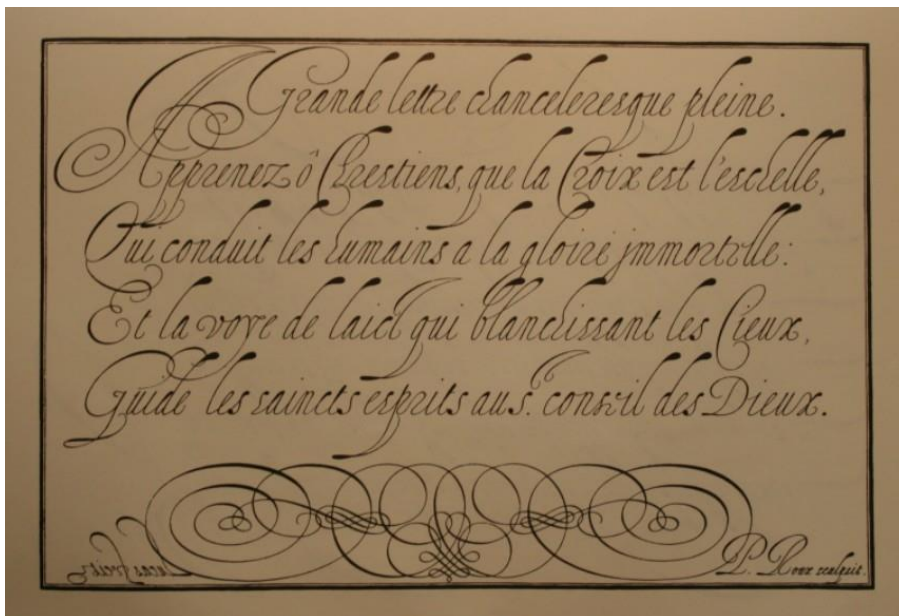 Grande lettre chanceleresque pleine.
Apprenez ô Chrestiens, que la Croix est l'eschelle,
Qui conduit les humains a la gloire jmmortelle:
Et la voye de laict qui blanchissant les Cieux,
Guide les saincts esprits au s. conseil des Dieux.
Lucas fecit
P. Roux scalpsit.